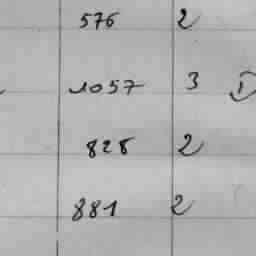 576 2
1057 3
828 2
881 2